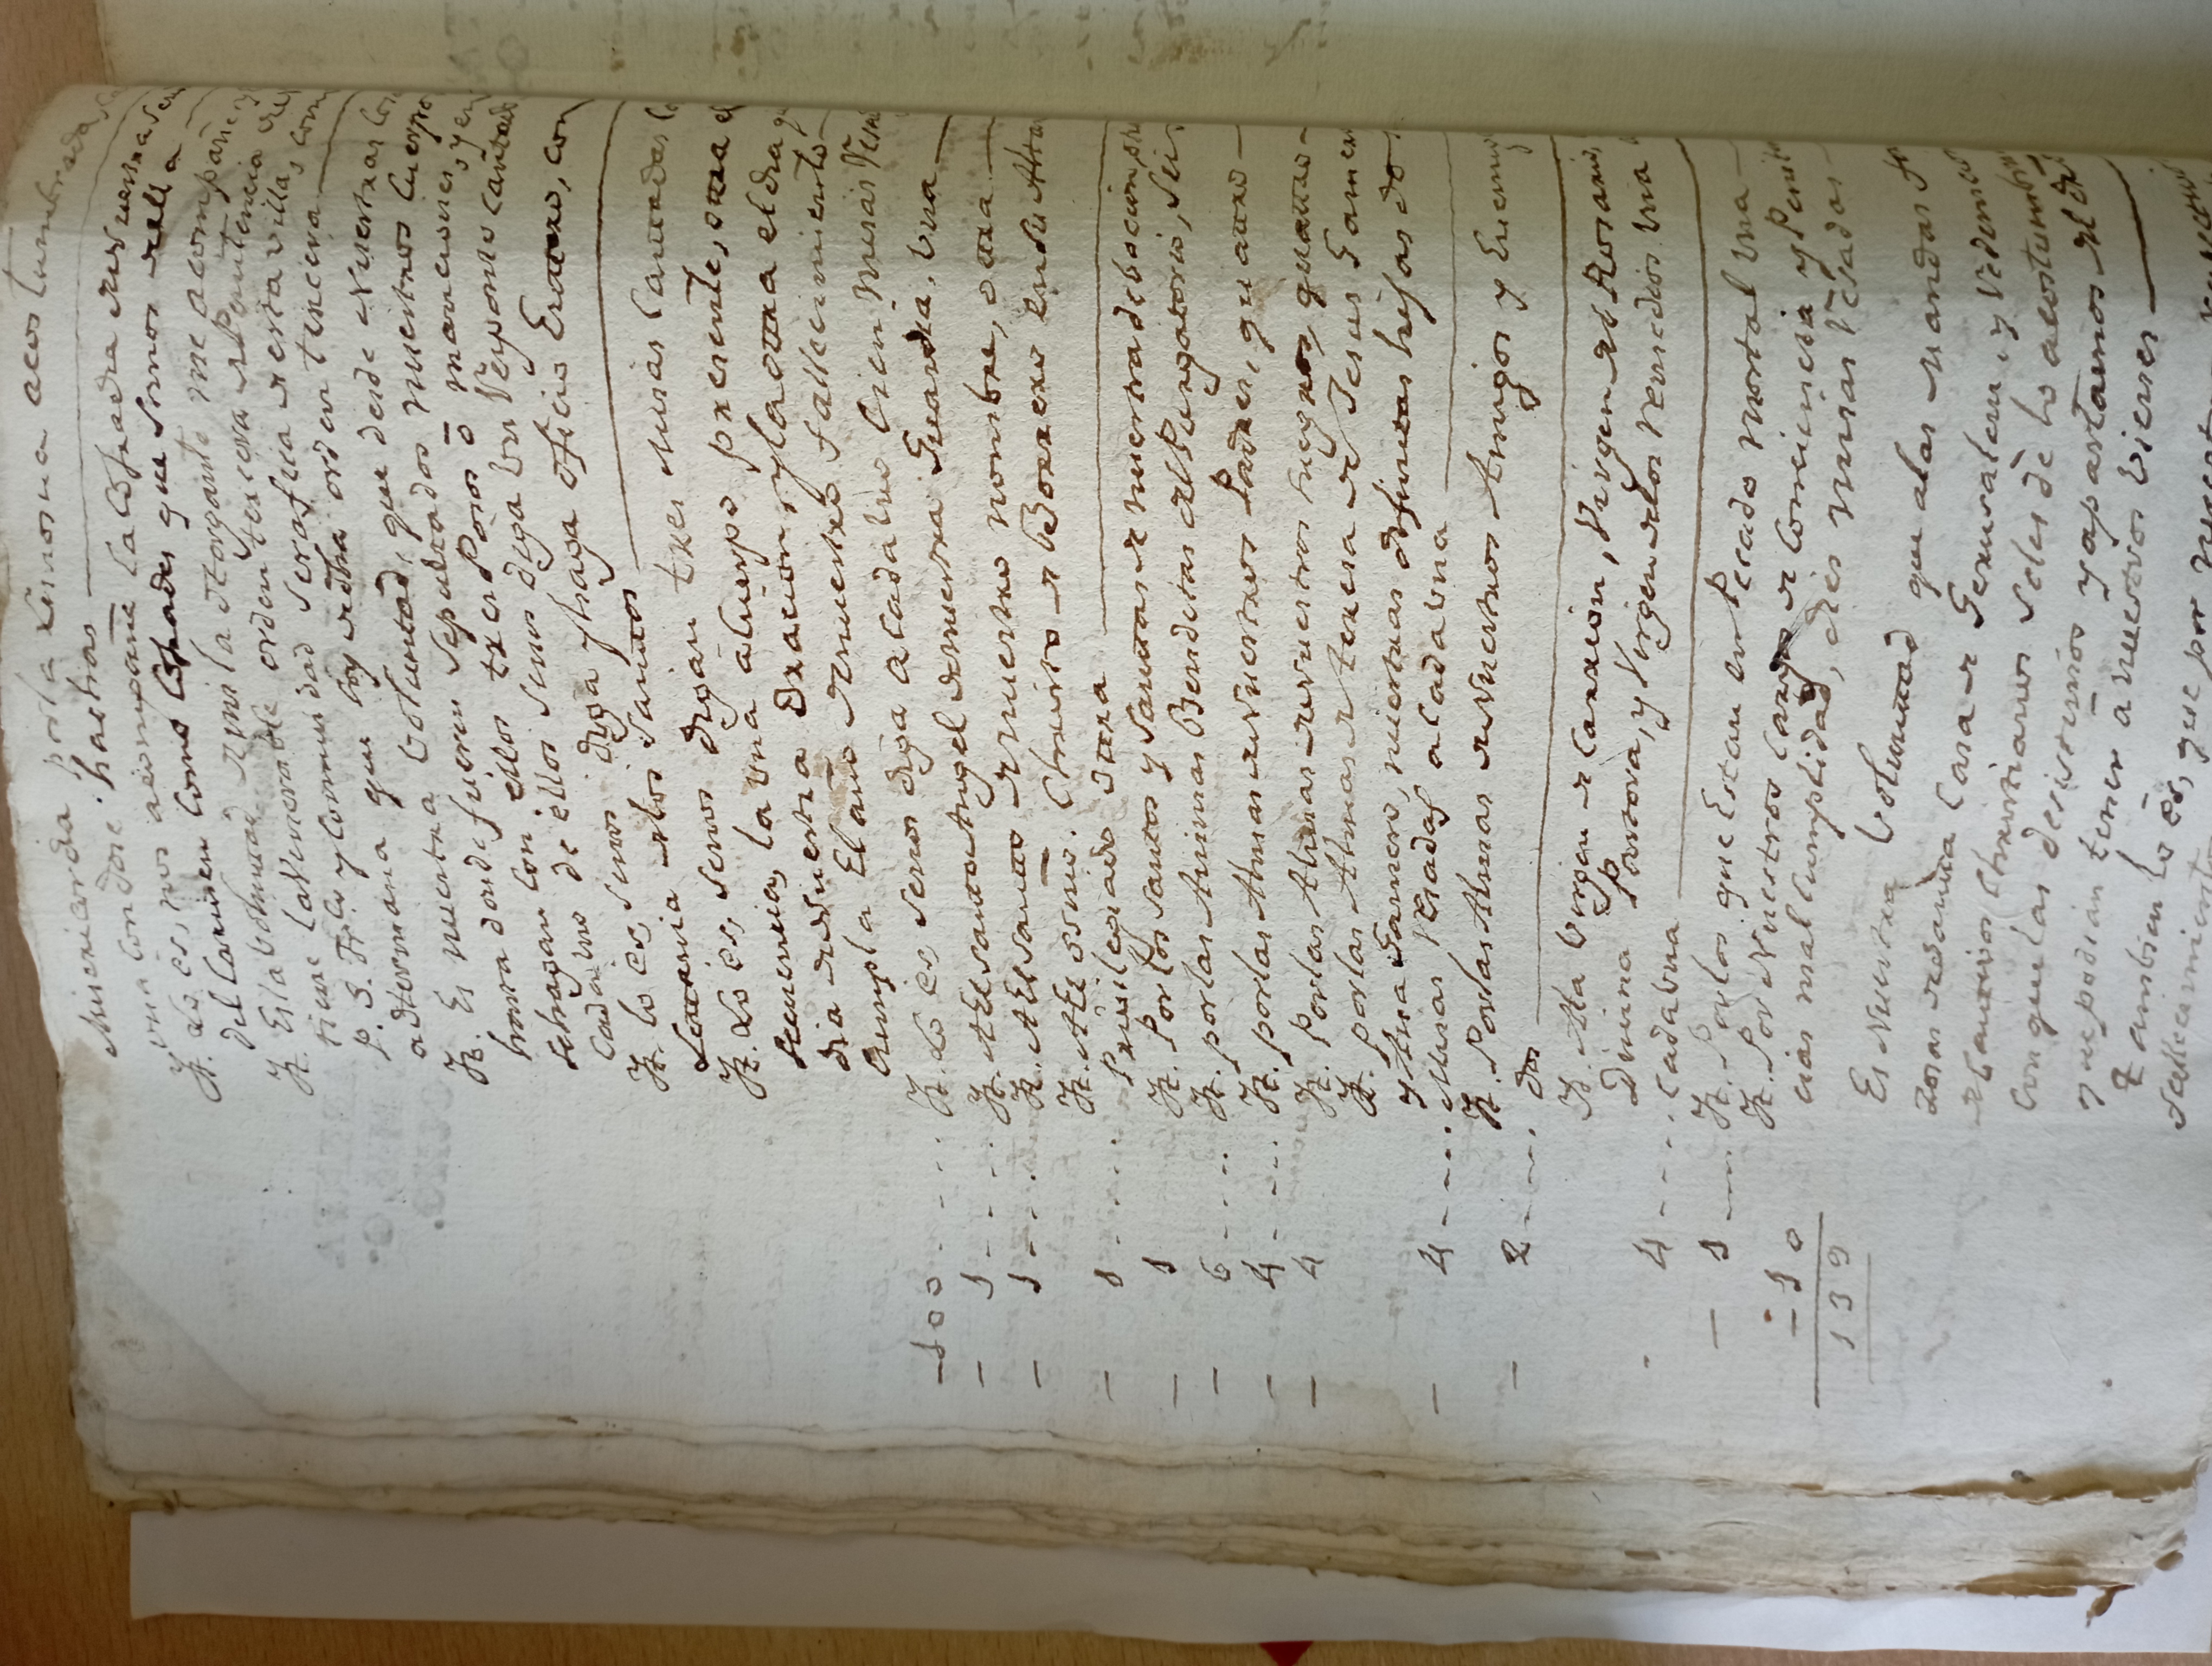 Misericordia por la Limosna acostumbrada,
una con dose hachas
It. Lo es, nos acompañe la Cofradia de Nuestra Señ
del Carmen como Cofrades que somos de ella
It. Es la Voluntad de mi la Otorgante me acompañe
tiene la Venerable orden tercera de Penitencia de
P. S. Fr.co y Comunidad Serafica de esta villa, com
a Hermana que soy de dha orden tercera
It. Es nuestra Voluntad, que desde Nuestras Cas
hasta donde fueren sepultados nuestros Cuerpo
se hagan con ellos tres Posos ô manciones, y en
cada uno de ellos senos diga un Responso cantado
It. lo es, senos diga y haga oficio Entero, con
Letania de los Santos
It. Lo es, senos digan tres Misas Cantadas
secuencia, la una â Cuerpo presente, otra el
dia de Nuestra Oración, y la otra el dia q
cumpla El año de nuestro fallecimiento
-100 It. Lo es, senos diga a cada uno Cien Misas Resad
- 1 It. A El santo Angel de nuestra Guardia, una
- 1 It. A El santto de nuestro nombre, otra
It. A El SSmo. Christo de Borrero en su Altar
- 1 Privilegiado otra
- 1 It. Por los santos y santtas de nuestra debocion, otr
- 6 It. por las Animas Benditas del Purgatorio, Seis
- 4 It. por las Almas de Nuestros Padres, quattro
- 4 It. Por las Almas de Nuestros suegros, quattro
It. por las Almas de teresa de Jesus Gamer
y Ana Gamero, nuestras difuntas hijas do
- 4 Misas Resadas a cada una
It. Por las Almas de Nuestros Amigos y Enemig
- 2 dos
It. A la Virgen de Carrion, Virgen del Rosario,
Divina Pastora, y Virgen de los Remedios una
- 4 cada una
- 1 It. Por los que Estan en Pecado mortal una
It. Por Nuestros cargos de Conciencia y Penite
- 10 cias mal cumplidad, dies misas Resadas
139
Es Nuestra Voluntad que a las mandas for
zosas de Santta Casa de Gerusalem, y Redemcio
de Cautivos Christianos seles dê lo acostumbra
con que las desistimos y apartamos del dro
que podian tener â nuestros bienes
Tambien lo es, que por
fallecimiento